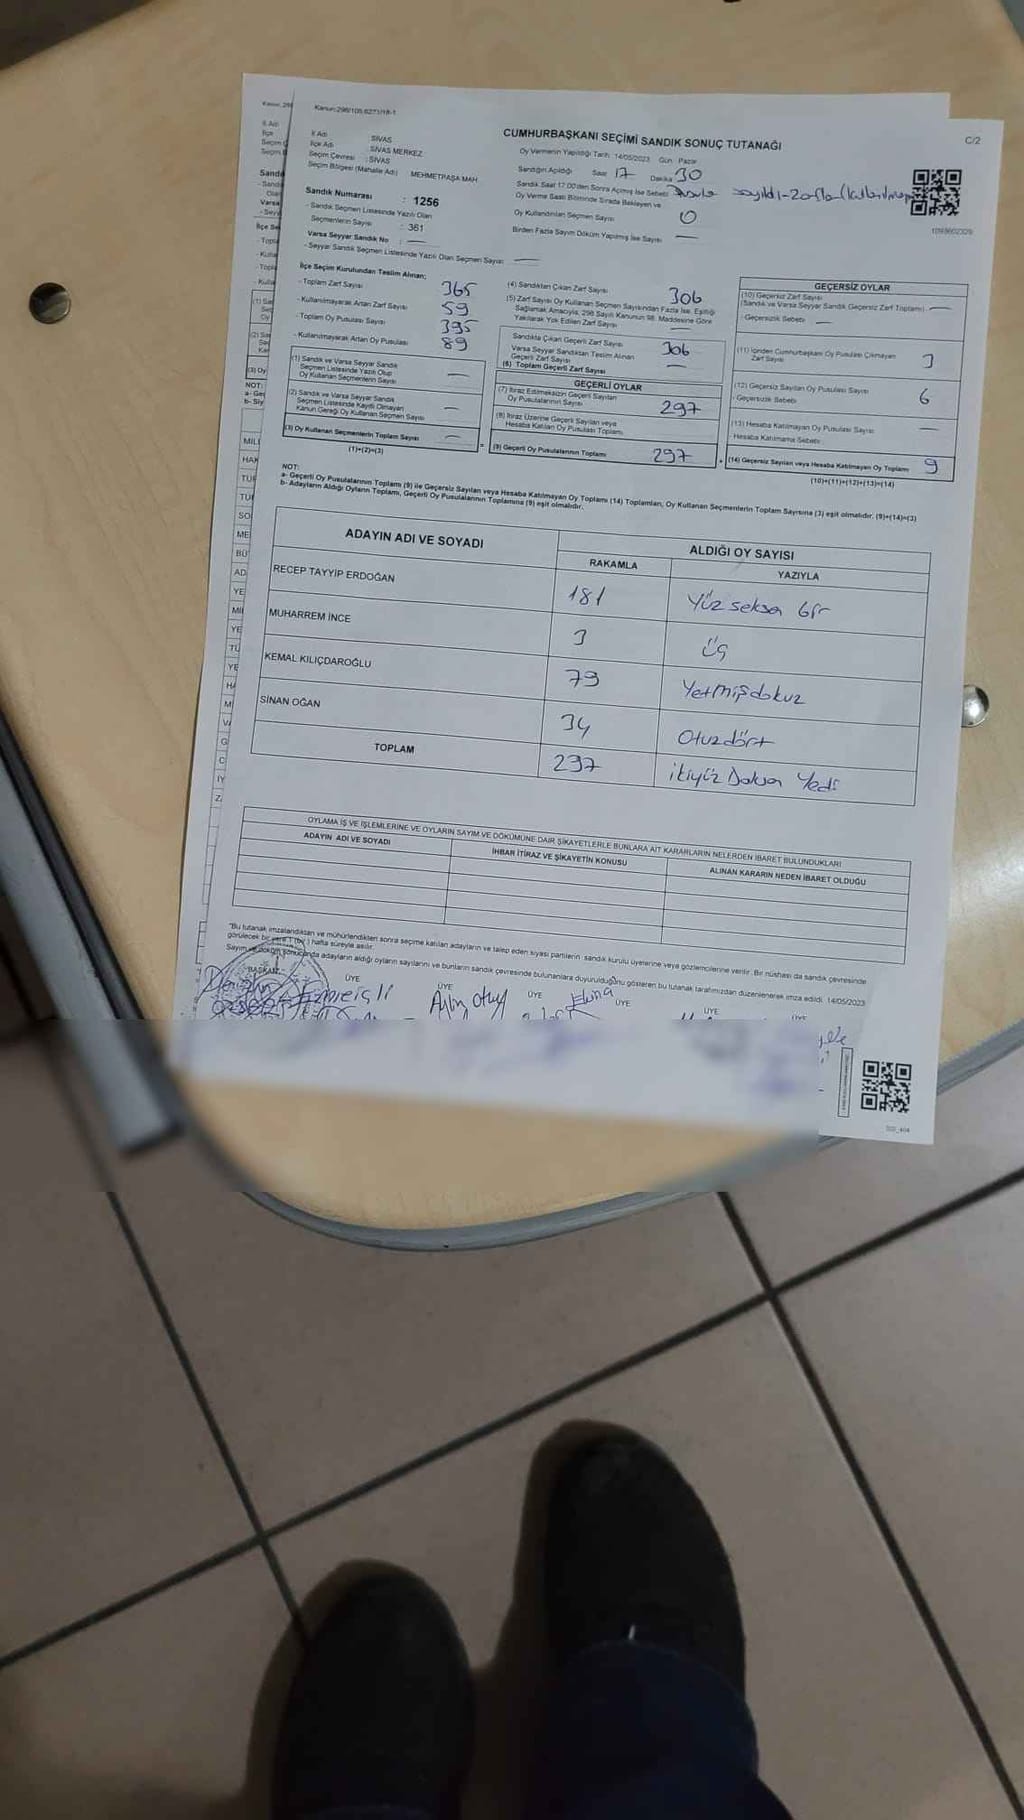 Kanun:298/105.6271/18-1
C/2
CUMHURBAŞKANI SEÇİMİ SANDIK SONUÇ TUTANAĞI
İl Adı : SİVAS
İlçe Adı : SİVAS MERKEZ
Seçim Çevresi : SİVAS
Seçim Bölgesi (Mahalle Adı) : MEHMETPAŞA MAH
Oy Vermenin Yapıldığı Tarih: 14/05/2023 Gün: Pazar
Sandığın Açıldığı Saat 17 Dakika 30
Sandık Saat 17.00'den Sonra Açılmış İse Sebebi
Oy Verme Saati Bitiminde Sırada Bekleyen ve
Oy Kullandırılan Seçmen Sayısı 0
Birden Fazla Sayım Döküm Yapılmış İse Sayısı —
Sandık Numarası : 1256
- Sandık Seçmen Listesinde Yazılı Olan
Seçmenlerin Sayısı : 361
Varsa Seyyar Sandık No : —
- Seyyar Sandık Seçmen Listesinde Yazılı Olan Seçmen Sayısı —
İlçe Seçim Kurulundan Teslim Alınan;
- Toplam Zarf Sayısı 365
- Kullanılmayarak Artan Zarf Sayısı 59
- Toplam Oy Pusulası Sayısı 395
- Kullanılmayarak Artan Oy Pusulası 89
(1) Sandık ve Varsa Seyyar Sandık
Seçmen Listesinde Yazılı Olup
Oy Kullanan Seçmenlerin Sayısı —
(2) Sandık ve Varsa Seyyar Sandık
Seçmen Listesinde Kayıtlı Olmayan
Kanun Gereği Oy Kullanan Seçmen Sayısı —
(3) Oy Kullanan Seçmenlerin Toplam Sayısı —
(1)+(2)=(3)
(4) Sandıktan Çıkan Zarf Sayısı 306
(5) Zarf Sayısı Oy Kullanan Seçmen Sayısından Fazla İse, Eşitliği
Sağlamak Amacıyla, 298 Sayılı Kanunun 98. Maddesine Göre
Yakılarak Yok Edilen Zarf Sayısı —
Sandıkta Çıkan Geçerli Zarf Sayısı 306
Varsa Seyyar Sandıktan Teslim Alınan
Geçerli Zarf Sayısı —
(6) Toplam Geçerli Zarf Sayısı
GEÇERLİ OYLAR
(7) İtiraz Edilmeksizin Geçerli Sayılan
Oy Pusulasının Sayısı 297
(8) İtiraz Üzerine Geçerli Sayılan veya
Hesaba Katılan Oy Pusulası Toplamı
(9) Geçerli Oy Pusulalarının Toplamı 297
GEÇERSİZ OYLAR
(10) Geçersiz Zarf Sayısı
(Sandık ve Varsa Seyyar Sandık Geçersiz Zarf Toplamı) —
- Geçersizlik Sebebi —
(11) İçinden Cumhurbaşkanı Oy Pusulası Çıkmayan
Zarf Sayısı 3
(12) Geçersiz Sayılan Oy Pusulası Sayısı 6
- Geçersizlik Sebebi
(13) Hesaba Katılmayan Oy Pusulası Sayısı —
- Hesaba Katılmama Sebebi
(14) Geçersiz Sayılan veya Hesaba Katılmayan Oy Toplamı 9
(10)+(11)+(12)+(13)=(14)
NOT:
a- Geçerli Oy Pusulalarının Toplamı (9) ile Geçersiz Sayılan veya Hesaba Katılmayan Oy Toplamı (14) Toplamları, Oy Kullanan Seçmenlerin Toplam Sayısına (3) eşit olmalıdır. (9)+(14)=(3)
b- Adayların Aldığı Oyların Toplamı, Geçerli Oy Pusulalarının Toplamına (9) eşit olmalıdır.
ADAYIN ADI VE SOYADI ALDIĞI OY SAYISI
RAKAMLA YAZIYLA
RECEP TAYYİP ERDOĞAN 181 Yüz seksen bir
MUHARREM İNCE 3 üç
KEMAL KILIÇDAROĞLU 79 Yetmişdokuz
SİNAN OĞAN 34 Otuzdört
TOPLAM 297 ikiyüz Doksan Yedi
OYLAMA İŞ VE İŞLEMLERİNE VE OYLARIN SAYIM VE DÖKÜMÜNE DAİR ŞİKAYETLERLE BUNLARA AİT KARARLARIN NELERDEN İBARET BULUNDUKLARI
ADAYIN ADI VE SOYADI İHBAR İTİRAZ VE ŞİKAYETİN KONUSU ALINAN KARARIN NEDEN İBARET OLDUĞU
"Bu tutanak imzalandıktan ve mühürlendikten sonra seçime katılan adayların ve talep eden siyasi partilerin sandık kurulu üyelerine veya gözlemcilerine verilir. Bir nüshası da sandık çevresinde
görülecek bir yere 1 (bir) hafta süreyle asılır.
Sayım ve döküm sonucunda adayların aldığı oyların sayılarını ve bunların sandık çevresinde bulunanlara duyurulduğunu gösteren bu tutanak tarafımızdan düzenlenerek imza edildi. 14/05/2023
BAŞKAN ÜYE ÜYE ÜYE ÜYE ÜYE ÜYE